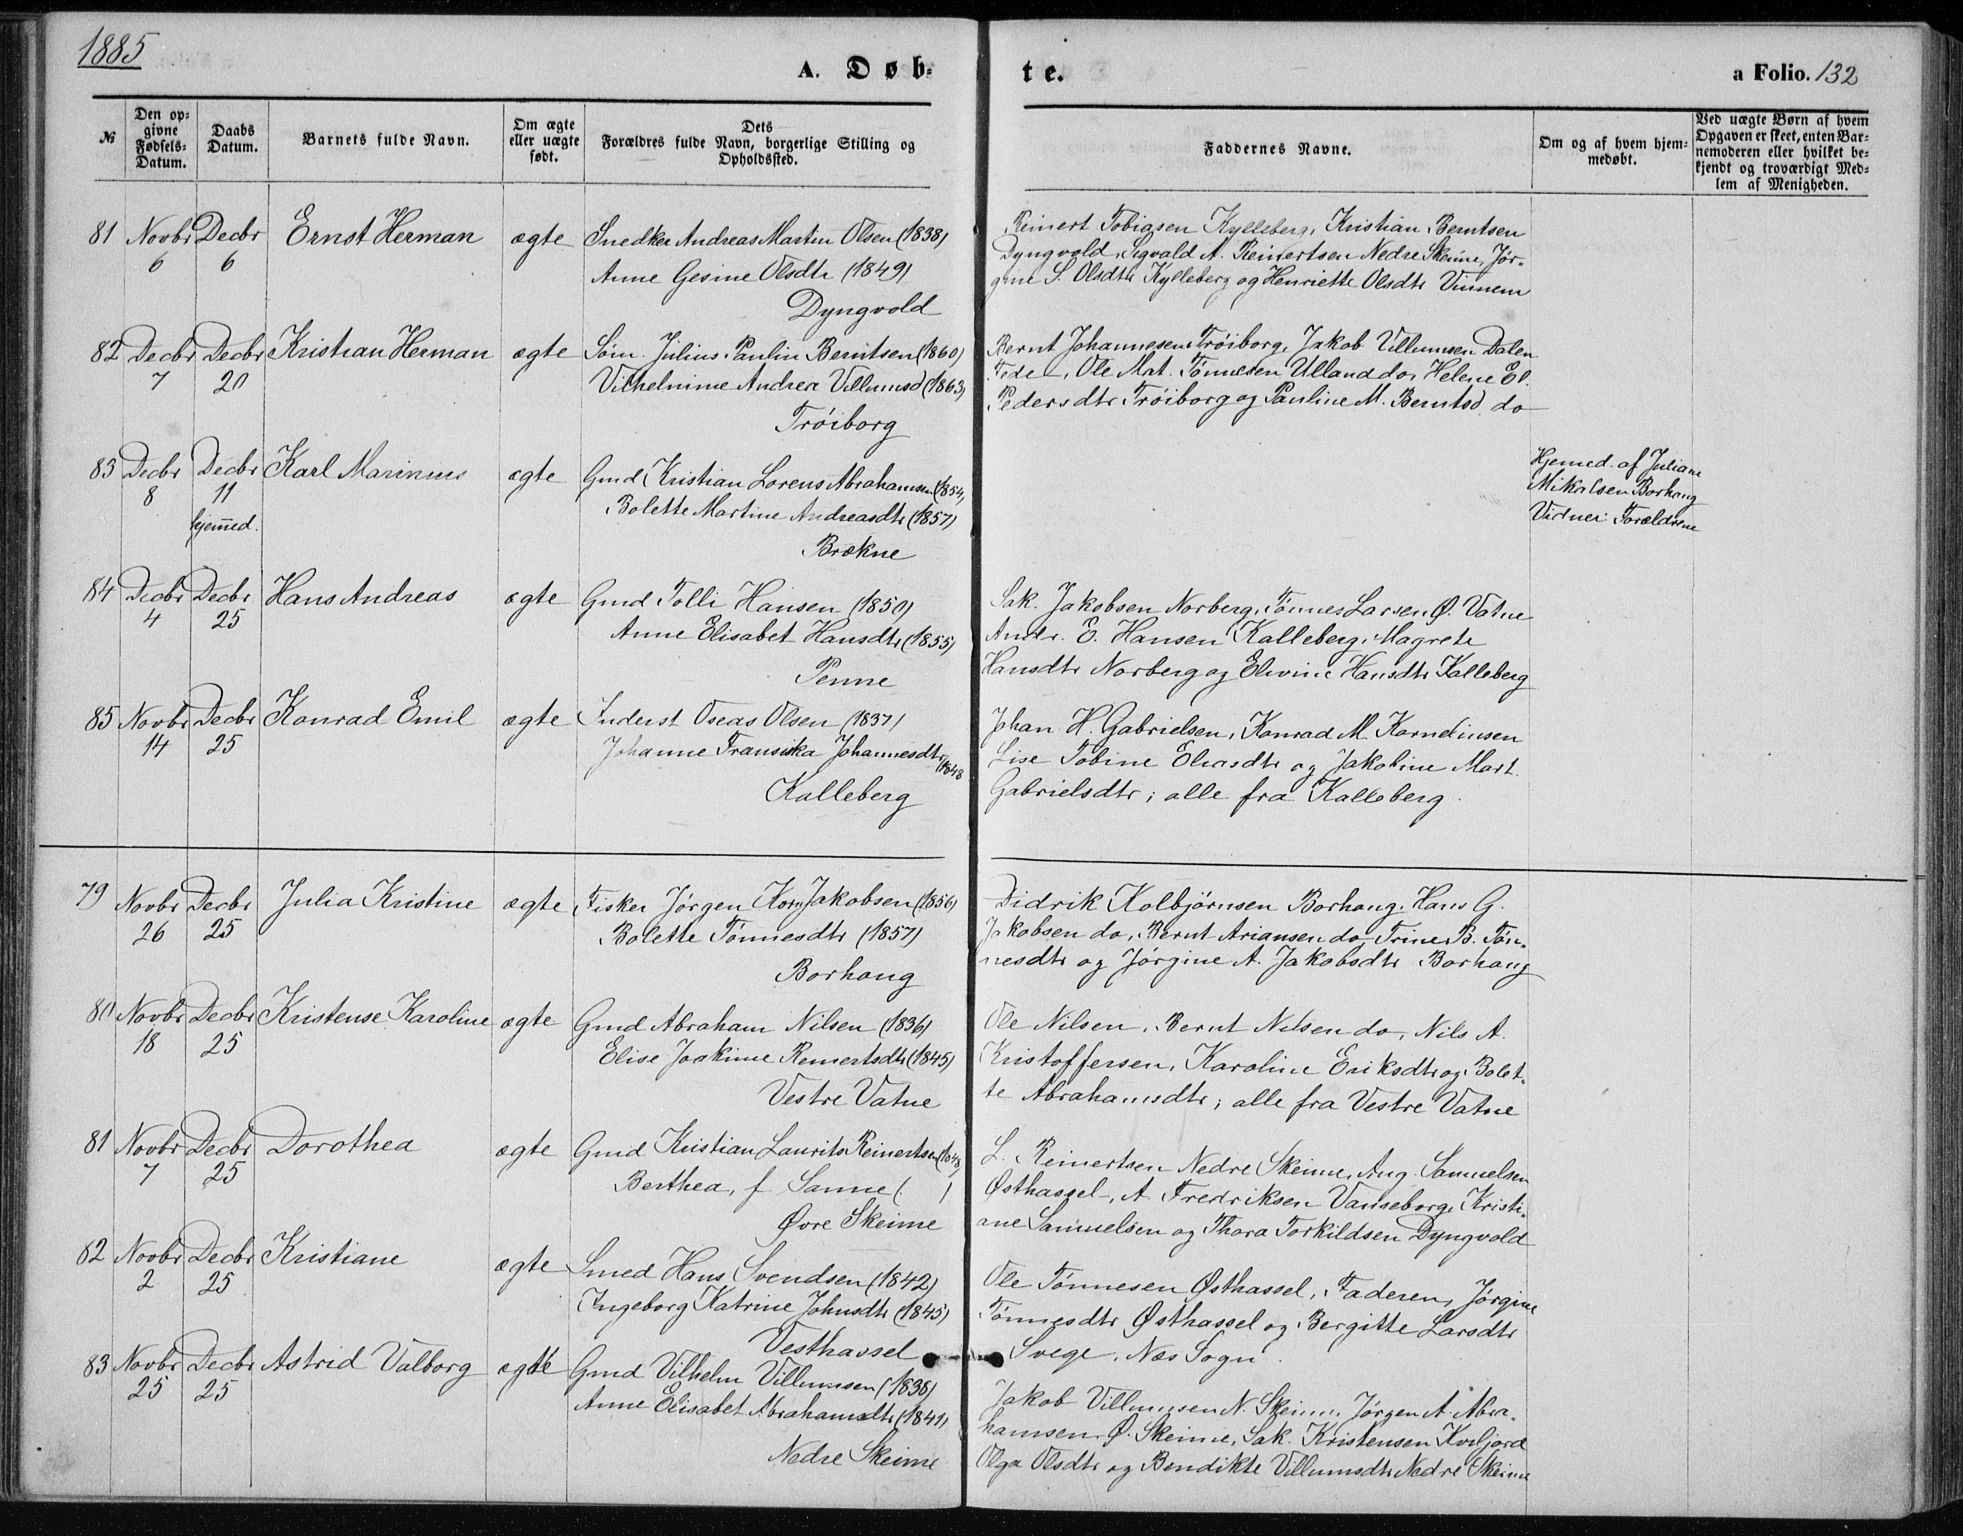 1885
A. Døb-
te.
a Folio. 132
№
Den op-
givne
Fødsels-
Datum.
Daabs
Datum.
Barnets fulde Navn.
Om ægte
eller uægte
født.
Dets
Forældres fulde Navn, borgerlige Stilling og
Opholdssted.
Faddernes Navne.
Om og af hvem hjem-
medøbt.
Ved uægte Børn af hvem
Opgaven er skeet, enten Bar-
nemoderen eller hvilket be-
kjendt og troværdigt Med-
lem af Menigheden.
81 Novbr 6 Decbr 6 Ernst Herman ægte Snedker Andreas Martin Olsen (1838)
Anne Gesine Olsdtr (1849)
Dyngvold
Reinert Tobiasen Kylleberg, Kristian Berntsen
Dyngvold, Sigvald A. Reinertsen Nedre Skeime, Jør-
gine S. Olsdtr Kylleberg og Henriette Olsdtr Vinnem
82 Decbr 7 Decbr 20 Kristian Herman ægte Søm. Julius Paulin Berntsen (1860)
Vilhelmine Andrea Villumsd (1863)
Trøiborg
Bernt Johannesen Trøiborg, Jakob Villumsen Dalen
Fede, Ole Mat. Tønnesen Ulland do, Helene El.
Pedersdtr Trøiborg og Pauline M. Berntsd do
83 Decbr 8 Decbr 11 hjemmed. Karl Marinius ægte Gmd Kristian Lorens Abrahamsen (1854)
Bolette Martine Andreasdtr (1857)
Brækne
Hjemed. af Juliane
Mikalsen Borhaug
Vidner: Forældrene
84 Decbr 4 Decbr 25 Hans Andreas ægte Gmd Tolli Hansen (1850)
Anne Elisabet Hansdtr (1855)
Penne
Sak. Jakobsen Norberg, Tønnes Larsen Ø. Vatne
Andr. E. Hansen Kalleberg, Magrete
Hansdtr Norberg og Elvine Hansdtr Kalleberg
85 Novbr 14 Decbr 25 Konrad Emil ægte Inderst Oseas Olsen (1837)
Johanne Fransiska Johannesdtr (1848
Kalleberg
Johan H. Gabrielsen, Konrad M. Korneliusen
Lise Tobine Eliasdtr og Jakobine Mart.
Gabrielsdtr; alle fra Kalleberg.
79 Novbr 26 Decbr 25 Julia Kristine ægte Fisker Jørgen Korn. Jakobsen (1856)
Bolette Tønnesdtr (1857)
Borhaug
Didrik Kolbjørnsen Borhaug, Hans G.
Jakobsen do, Bernt Ariansen do, Trine B. Tøn-
nesdtr og Jørgine A. Jakobsdtr Borhaug
80 Novbr 18 Decbr 25 Kristense Karoline ægte Gmd Abraham Nilsen (1836)
Elise Joakime Reinertsdtr (1845)
Vestre Vatne
Ole Nilsen, Bernt Nilsen do, Nils A.
Kristoffersen, Karoline Eriksdtr og Bolet-
te Abrahamsdtr; alle fra Vestre Vatne
81 Novbr 7 Decbr 25 Dorothea ægte Gmd Kristian Laurits Reinertsen (1848)
Berthea, f Sanne ( )
Øvre Skeime
L. Reinertsen Nedre Skeime, Aug. Samuelsen
Østhassel, A Fredriksen Vanseborg, Kristi-
ane Samuelsen og Thara Torkildsen Dyngvold
82 Novbr 2 Decbr 25 Kristiane ægte Smed Hans Svendsen (1842)
Ingeborg Katrine Johnsdtr (1845)
Vesthassel
Ole Tønnesen Østhassel, Faderen, Jørgine
Tønnesdtr Østhassel og Bergitte Larsdtr
Svege, Næs Sogn.
83 Novbr 25 Decbr 25 Astrid Valborg ægte Gmd Vilhelm Villumsen (1838)
Anne Elisabet Abrahamsdtr (1841)
Nedre Skeime
Jakob Villumsen N. Skeime, Jørgen A. Abra-
hamsen Ø. Skeime, Sak. Kristensen Kviljord
Olga Olsdtr og Bendikte Villumsdtr Nedre Skeime